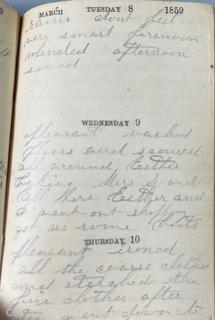 MARCH TUESDAY 8 1859
rains dont feel
very smart forenoon
mended afternoon
sewed
WEDNESDAY 9
pleasant washed
floors and scoured
all around, Esther
Mrs and
all here Esther and
I went out
got us some boots
THURSDAY 10
pleasant ironed
all the coarse clothes
and starched the
fine clothes after
went down to